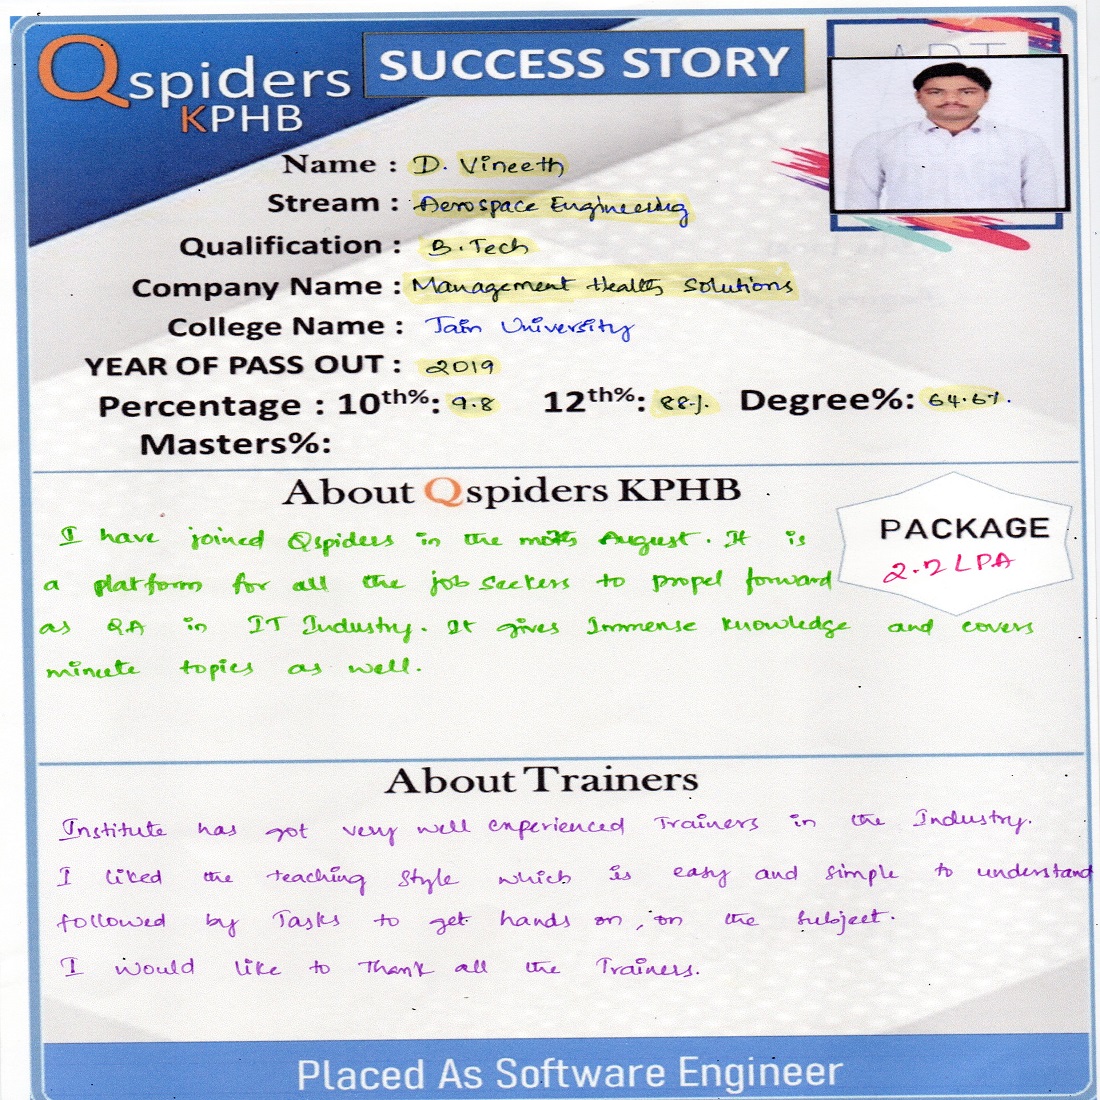 Qspiders
KPHB
SUCCESS STORY
Name : D. Vineeth
Stream : Aerospace Engineering
Qualification : B.Tech
Company Name : Management Health Solutions
College Name : Jain University
YEAR OF PASS OUT : 2019
Percentage : 10th%: 9.8 12th%: 88%. Degree%: 64.67.
Masters%:
About Qspiders KPHB
PACKAGE
2.2 LPA
I have joined Qspiders in the August. It is
a platform for all the job seekers to propel forward
as QA in IT Industry. It gives Immense knowledge and covers
minute topics as well.
About Trainers
Institute has got very well experienced Trainers in the Industry.
I liked the teaching style which is easy and simple to understand
followed by Tasks to get hands on, on the subject.
I would like to Thank all the Trainers.
Placed As Software Engineer